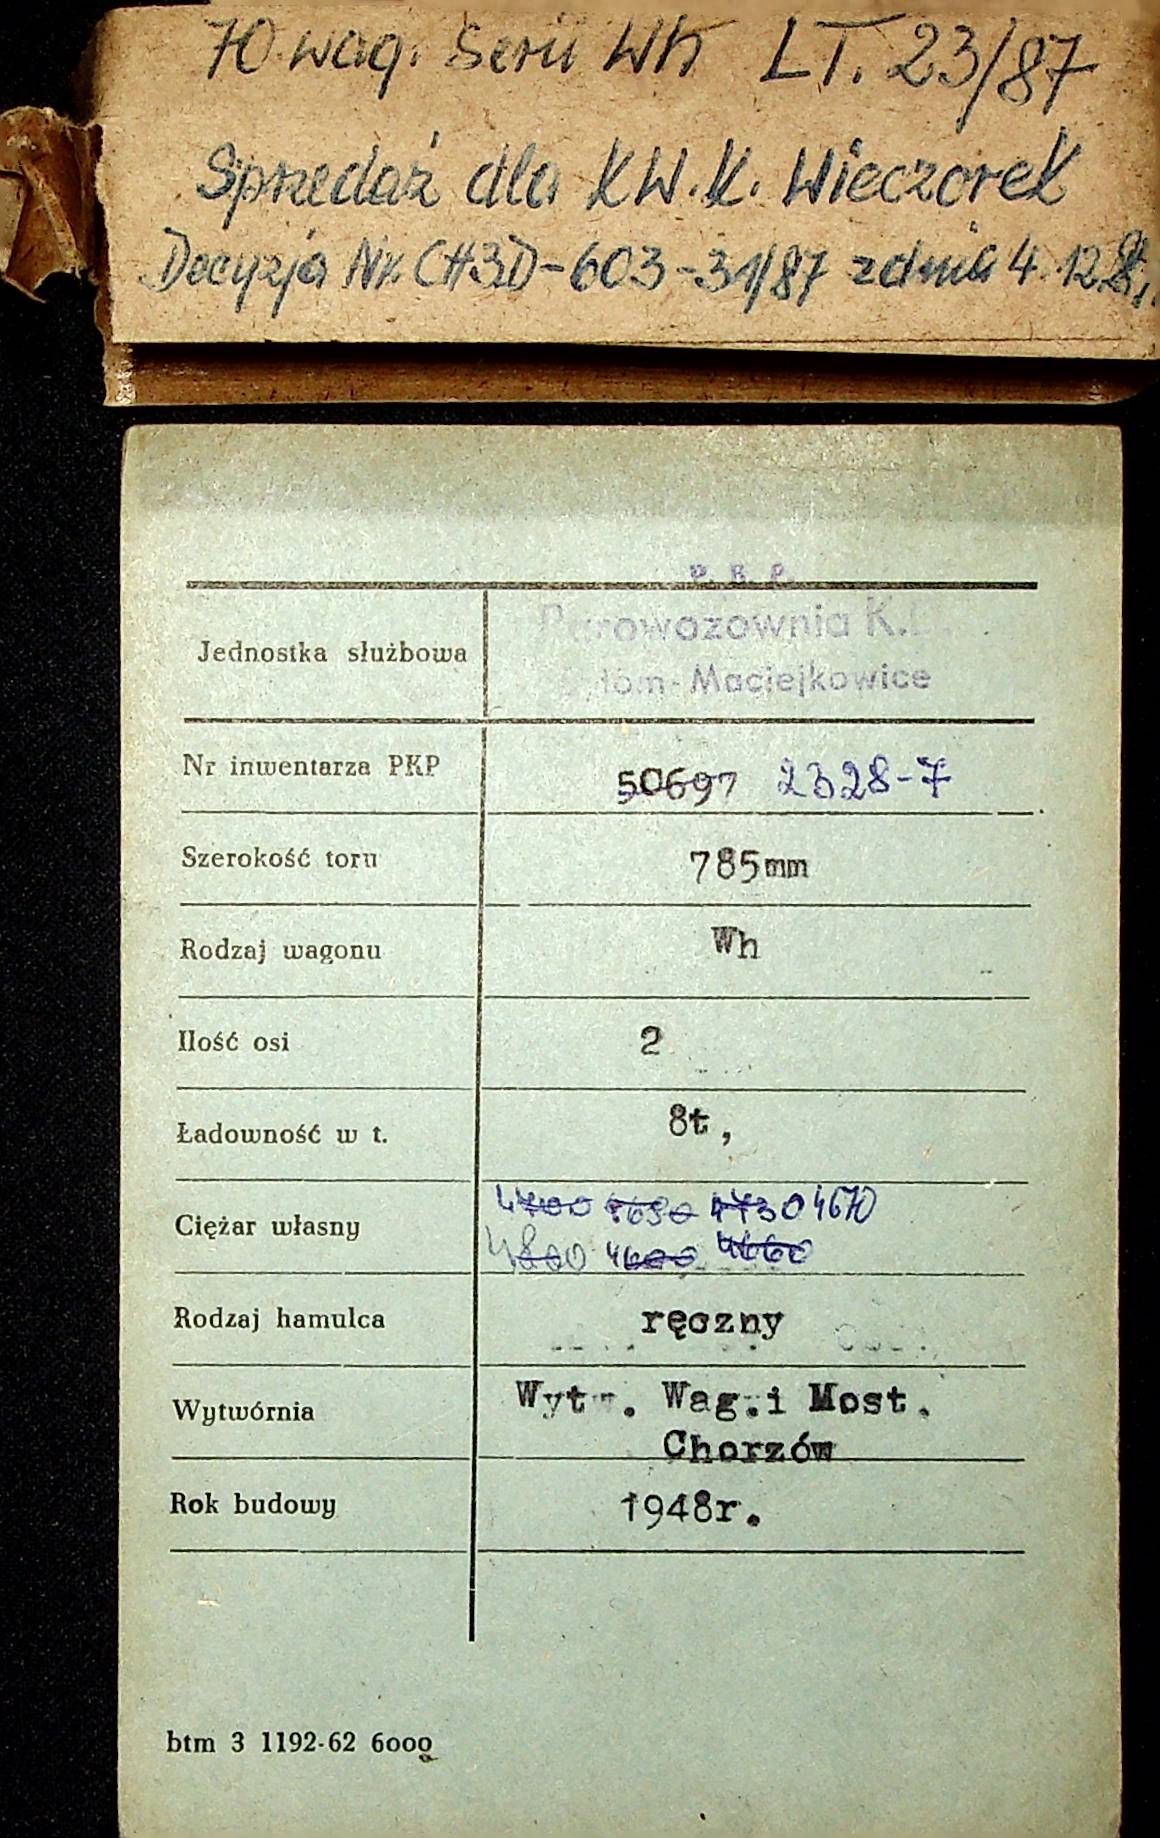 70 wag. serii Wh LT. 23/87
Sprzedaż dla KW.K. Wieczorek
Decyzja Nr. CH3D-603-31/87 z dnia 4.12.
Jednostka służbowa
Parowozownia K.D.
Maciejkowice
Nr inwentarza PKP 50697 2328-7
Szerokość toru 785mm
Rodzaj wagonu Wh
Ilość osi 2
Ładowność w t. 8t,
4700 4650 4730 4670
Ciężar własny
4800 4600 4660
Rodzaj hamulca ręczny
Wytw. Wag.i Most.
Wytwórnia
Chorzów
Rok budowy 1948r.
btm 3 1192-62 6000